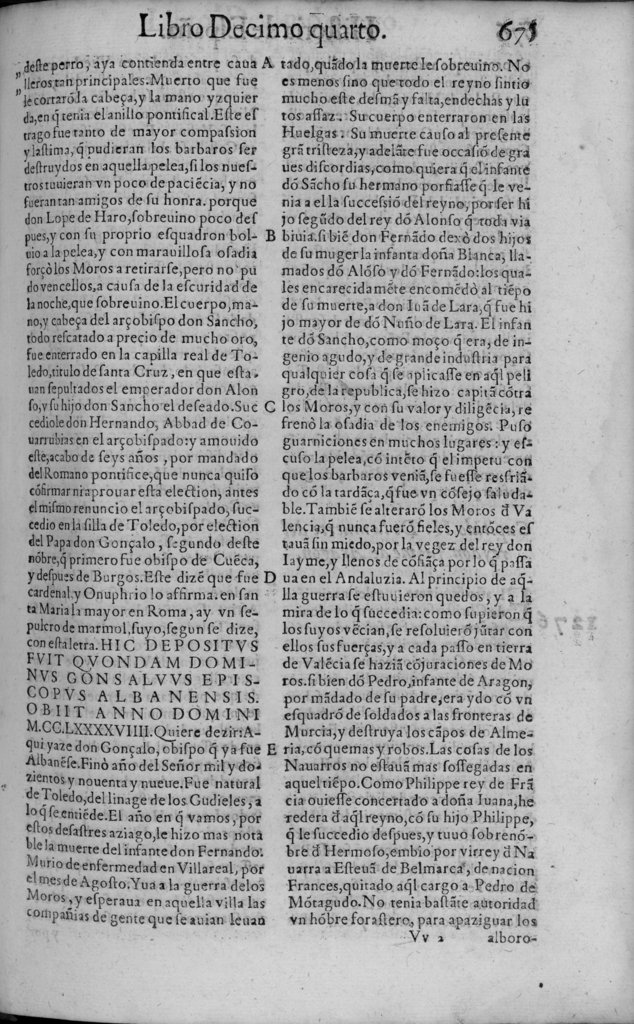 Libro Decimo quarto. 675
„ deste perro, aya contienda entre caua
„ lleros tan principales. Muerto que fue
le cortarō la cabeça, y la mano yzquier
da, en q̃ tenia el anillo pontifical. Este es
trago fue tanto de mayor compassion
y lastima, q̃ pudieran los barbaros ser
destruydos en aquella pelea, si los nues-
tros tuuieran vn poco de paciēcia, y no
fueran tan amigos de su honra. porque
don Lope de Haro, sobreuino poco des
pues, y con su proprio esquadron bol-
uio a la pelea, y con marauillosa osadia
forçò los Moros a retirarse, pero no pu
do vencellos, a causa de la escuridad de
la noche, que sobreuino. El cuerpo, ma-
no, y cabeça del arçobispo don Sancho,
todo rescatado a precio de mucho oro,
fue enterrado en la capilla real de To-
ledo, titulo de santa Cruz, en que esta-
uan sepultados el emperador don Alon
so, y su hijo don Sancho el deseado. Suc
cediole don Hernando, Abbad de Co-
uarrubias en el arçobispado: y amouido
este, acabo de seys años, por mandado
del Romano pontifice, que nunca quiso
cōfirmar ni aprouar esta election, antes
el mismo renuncio el arçobispado, suc-
cedio en la silla de Toledo, por election
del Papa don Gonçalo, segundo deste
nōbre, q̃ primero fue obispo de Cuēca,
y despues de Burgos. Este dizē que fue
cardenal. y Onuphrio lo affirma. en san
ta Maria la mayor en Roma, ay vn se-
pulcro de marmol, suyo, segun se dize,
con esta letra. HIC DEPOSITVS
FVIT QVONDAM DOMI-
NVS GONSALVVS EPIS-
COPVS ALBANENSIS.
OBIIT ANNO DOMINI
M.CC.LXXXXVIIII. Quiere dezir: A-
qui yaze don Gonçalo, obispo q̃ ya fue
Albanēse. Finò año del Señor mil y do-
zientos y nouenta y nueue. Fue natural
de Toledo, del linage de los Gudieles, a
lo q̃ se entiēde. El año en q̃ vamos, por
estos desastres aziago, le hizo mas nota
ble la muerte del infante don Fernando.
Murio de enfermedad en Villareal, por
el mes de Agosto. Yua a la guerra de los
Moros, y esperaua en aquella villa las
compañias de gente que se auian leuan
A tado, quādo la muerte le sobreuino. No
es menos sino que todo el reyno sintio
mucho este desmā y falta, endechas y lu
tos assaz. Su cuerpo enterraron en las
Huelgas. Su muerte causo al presente
grā tristeza, y adelāte fue occasiō de gra
ues discordias, como quiera q̃ el infante
dō Sācho su hermano porfiasse q̃ le ve-
nia a el la successiō del reyno, por ser hi
jo segūdo del rey dō Alonso q̃ toda via
B biuia. si biē don Fernādo dexò dos hijos
de su muger la infanta doña Blanca, lla-
mados dō Alōso y dō Fernādo: los qua-
les encarecida mēte encomēdò al tiēpo
de su muerte, a don Iuā de Lara, q̃ fue hi
jo mayor de dō Nuño de Lara. El infan
te dō Sancho, como moço q̃ era, de in-
genio agudo, y de grande industria para
qualquier cosa q̃ se aplicasse en aq̃l peli
gro, de la republica, se hizo capitā cōtra
C los Moros, y con su valor y diligēcia, re
frenò la osadia de los enemigos. Puso
guarniciones en muchos lugares: y es-
cuso la pelea, cō intēto q̃ el impetu con
que los barbaros veniā, se fuesse resfriā-
do cō la tardāça, q̃ fue vn cōsejo saluda-
ble. Tambiē se alterarō los Moros đ Va
lencia, q̃ nunca fuerō fieles, y entōces es
tauā sin miedo, por la vegez del rey don
Iayme, y llenos de cōfiāça por lo q̃ passa
D ua en el Andaluzia. Al principio de aq̃-
lla guerra se estuuieron quedos, y a la
mira de lo q̃ succedia: como supieron q̃
los suyos vēcian, se resoluierō jūtar con
ellos sus fuerças, y a cada passo en tierra
de Valēcia se haziā cōjuraciones de Mo
ros. si bien dō Pedro, infante de Aragon,
por mādado de su padre, era ydo cō vn
esquadrō de soldados a las fronteras de
Murcia, y destruya los cāpos de Alme-
E ria, cō quemas y robos. Las cosas de los
Nauarros no estauā mas sossegadas en
aquel tiēpo. Como Philippe rey de Frā
cia ouiesse concertado a doña Iuana, he
redera đ aq̃l reyno, cō su hijo Philippe,
q̃ le succedio despues, y tuuo sobrenō-
bre đ Hermoso, embio por virrey đ Na
uarra a Esteuā de Belmarca, de nacion
Frances, quitado aq̃l cargo a Pedro de
Mōtagudo. No tenia bastāte autoridad
vn hōbre forastero, para apaziguar los
Vv 2 alboro-